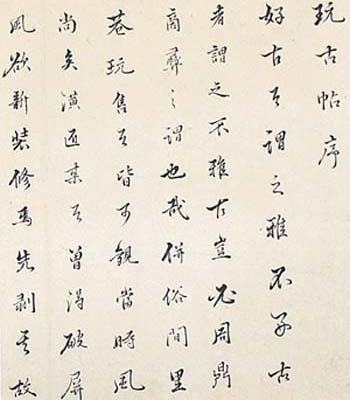 玩古帖序
好古者謂之雅不好古
者謂之不雅古豈必周鼎
商彝之謂也哉併俗間里
巷玩售者皆可觀當時風
尚矣潢匠某者曾得破屏
風欲新裝修焉先剥其故